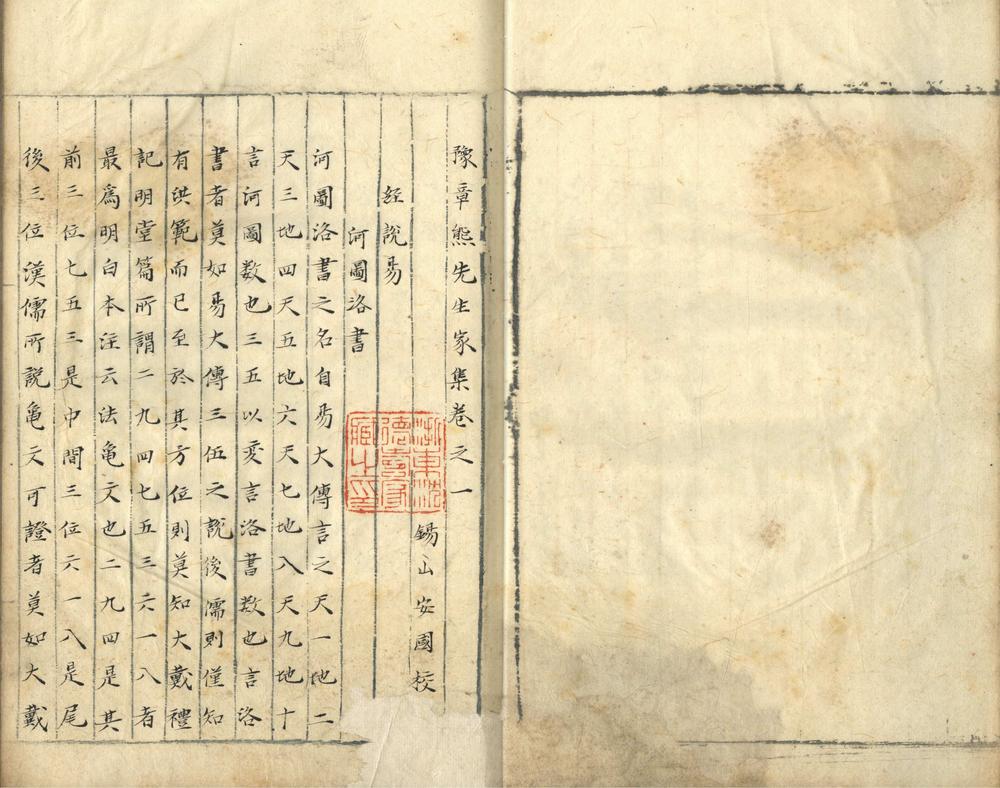 豫章熊先生家集卷之一
錫山安國校
經說易
河圖洛書
河圖洛書之名自易大傳言之天一地二
天三地四天五地六天七地八天九地十
言河圖数也三五以变言洛書数也言洛
書者莫如易大傳三伍之說後儒則僅知
有洪範而已至於其方位則莫知大戴禮
記明堂篇所謂二九四七五三六一八者
最爲明白本注云法龜文也二九四是其
前三位七五三是中間三位六一八是尾
後三位漢儒所說龜文可證者莫如大戴
浙東沈
德壽家
藏之印